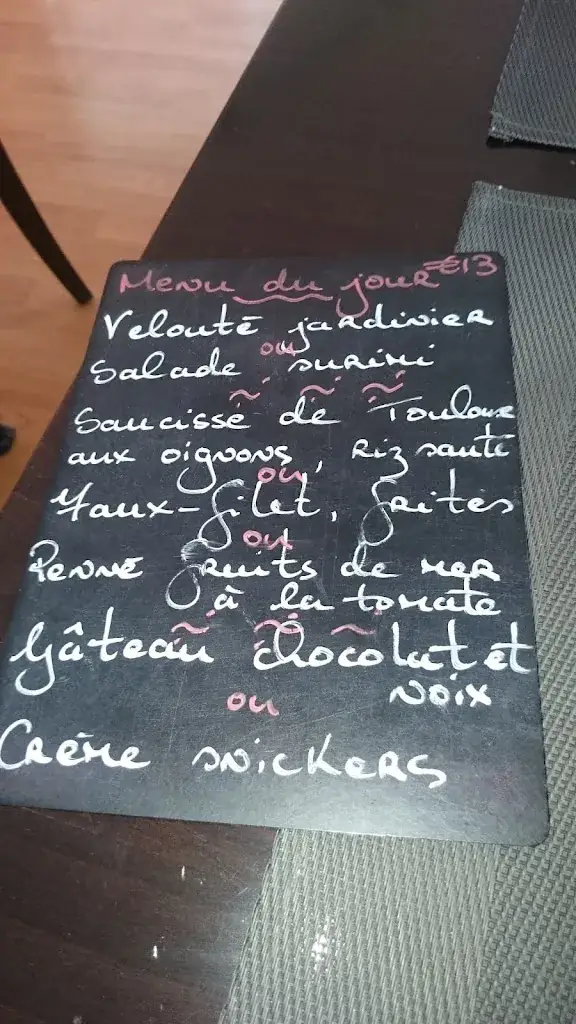 Menu du jour €13
Velouté jardinier
ou
Salade surimi
~ ~ ~
Saucisse de Toulouse
aux oignons, Riz sauté
ou
Faux-filet, frites
ou
Penne fruits de mer
à la tomate
~ ~ ~
Gâteau chocolat et
noix
ou
Crème snickers